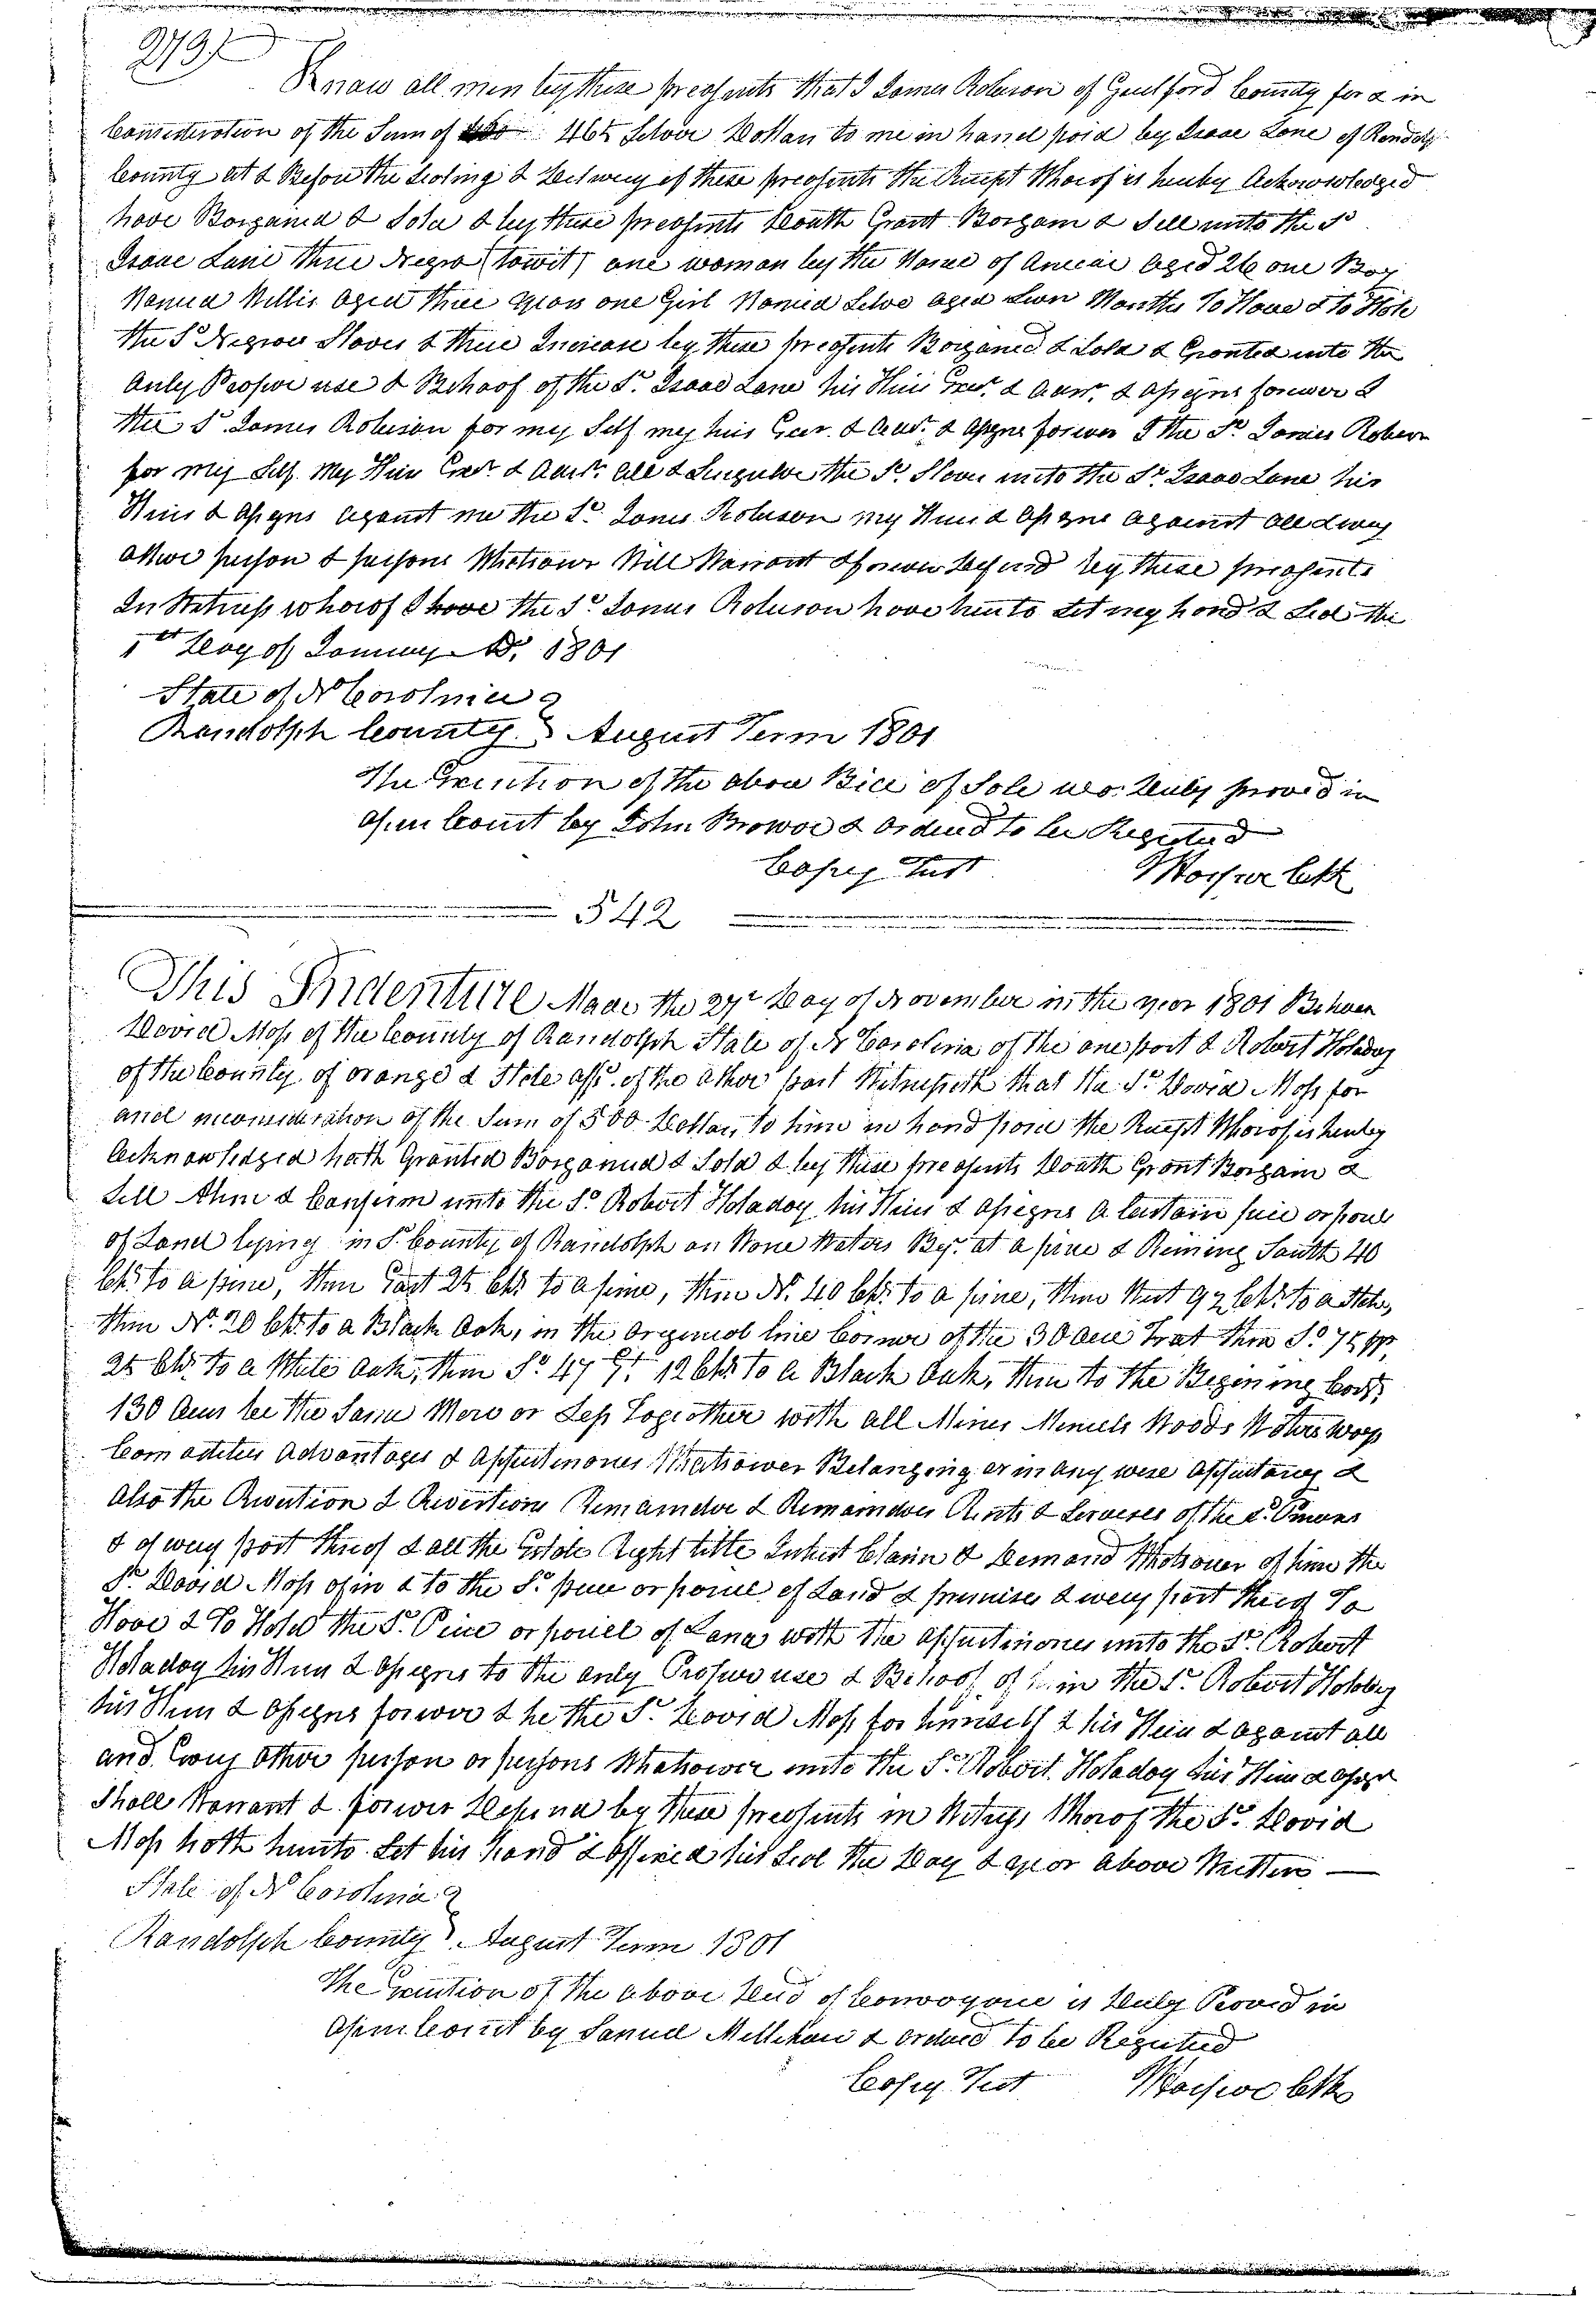 273
Know all men by these presents that I James Robison of Guilford County for & in
Consideration of the Sum of 465 Silver Dollars to me in hand paid by Isaac Lane of Randolph
County at & Before the Sealing & Delivery of these presents the Receipt Whereof is hereby Acknowledged
have Bargained & Sold & by these presents Doath Grant Bargain & Sell unto the Sd
Isaac Lane three Negro (towit) one woman by the Name of Aged 26 one Boy
Named Willis aged three years one Girl Named aged Months To Have & to Hold
the Sd Negroe Slaves & their Increase by these presents Bargained & Sold & Granted unto the
Only Proper use & Behoof of the Sd Isaac Lane his Heirs Exr. & Admr. & Assigns forever &
the Sd James Robison for my Self my heirs Exr. & Admr. & Assigns forever I the Sd James Robison
for my Self My Heirs Exr. & Admr. all & Singular the Sd Slaves unto the Sd Isaac Lane his
Heirs & Assigns against me the Sd James Robison my Heirs & Assigns against all & every
other person & persons Whatsover Will Warrant & forever Defend by these presents
In Witness whereof I have the Sd James Robison have hunto Set my hand & Seal the
1st Day of AD. 1801
State of N Carolina
Randolph County August Term 1801
The Execution of the above Bill of Sale was Duly proved in
Open Court by John Brower & Ordered to be Registered
Copy Test Harper Clk
542
This Indenture Made the 27th Day of November in the year 1801 Between
David Moss of the County of Randolph State of N Carolina of the one part & Robert Holaday
of the County of Orange & State aff. of the other part Witnesseth that the Sd David Moss for
and inconsideration of the Sum of 500 Dollars to him in hand paid the Receipt Whereof is hereby
Acknowledged hath Granted Bargained & Sold & by these presents Doath Grant Bargain &
Sell Alien & Confirm unto the Sd Robert Holaday his Heirs & Assigns a Certain piece or parcel
of Land lying in Sd County of Randolph on Waters Beg. at a pine & Runing South 40
Chs. to a pine, then East 25 Chs to a pine, then No. 40 Chs. to a pine, then West 9½ Chs. to a Stake,
then No. 20 Chs. to a Black Oak, in the Original line Corner of the Tract then So. 75 W
25 Chs. to a White Oak, then So. 47 Et. 12 Chs to a Black Oak, then to the Begining Cont.
130 Acres be the Same More or Less Together with all Mines Minerals Woods Waters ways
Comodities Advantages & Appurtinances Whatsoever Belonging or in any wise Appurtaining &
Also the Revertion & Revertions Remainder & Remainders Rents & Services of the Sd
& of every part thereof & all the Estate Right title Interest Claim & Demand Whatsover of him the
Sd David Moss of in & to the Sd piece or parcel of Land & premises & every part thereof To
Have & To Hold the Sd Piece or parcel of Land with the Appurtinances unto the Sd Robert
Holaday his Heirs & Assigns to the only Proper use & Behoof of him the Sd Robert Holaday
his Heirs & Assigns forever & he the Sd David Moss for himself & his Heirs & against all
and Every other person or persons Whatsover unto the Sd Robert Holaday his Heirs & Assigns
Shall Warrant & forever Defend by these presents in Witness Whereof the Sd David
Moss hath hunto Set his hand & affixed his Seal the Day & year above Written
State of N Carolina
Randolph County August Term 1801
The Execution of the above Deed of Conveyance is Duly Proved in
Open Court by Samuel Millikan & Ordered to be Registered
Copy Test Harper Clk